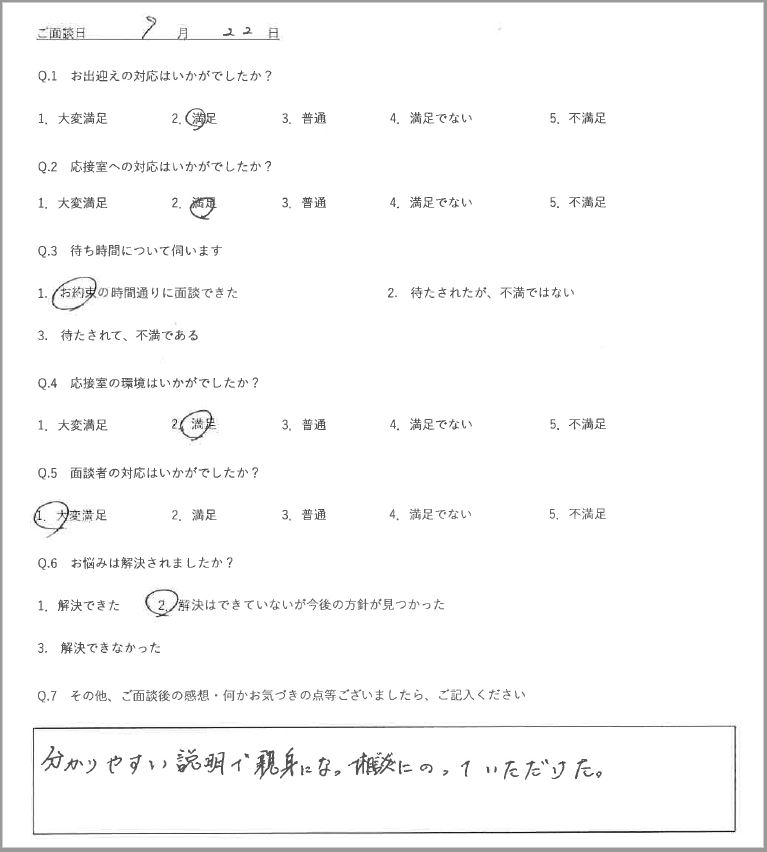 ご面談日 9 月 22 日
Q.1 お出迎えの対応はいかがでしたか？
1. 大変満足 2. 満足 3. 普通 4. 満足でない 5. 不満足
Q.2 応接室への対応はいかがでしたか？
1. 大変満足 2. 満足 3. 普通 4. 満足でない 5. 不満足
Q.3 待ち時間について伺います
1. お約束の時間通りに面談できた 2. 待たされたが、不満ではない
3. 待たされて、不満である
Q.4 応接室の環境はいかがでしたか？
1. 大変満足 2. 満足 3. 普通 4. 満足でない 5. 不満足
Q.5 面談者の対応はいかがでしたか？
1. 大変満足 2. 満足 3. 普通 4. 満足でない 5. 不満足
Q.6 お悩みは解決されましたか？
1. 解決できた 2. 解決はできていないが今後の方針が見つかった
3. 解決できなかった
Q.7 その他、ご面談後の感想・何かお気づきの点等ございましたら、ご記入ください
分かりやすい説明で親身になって相談にのっていただけた。